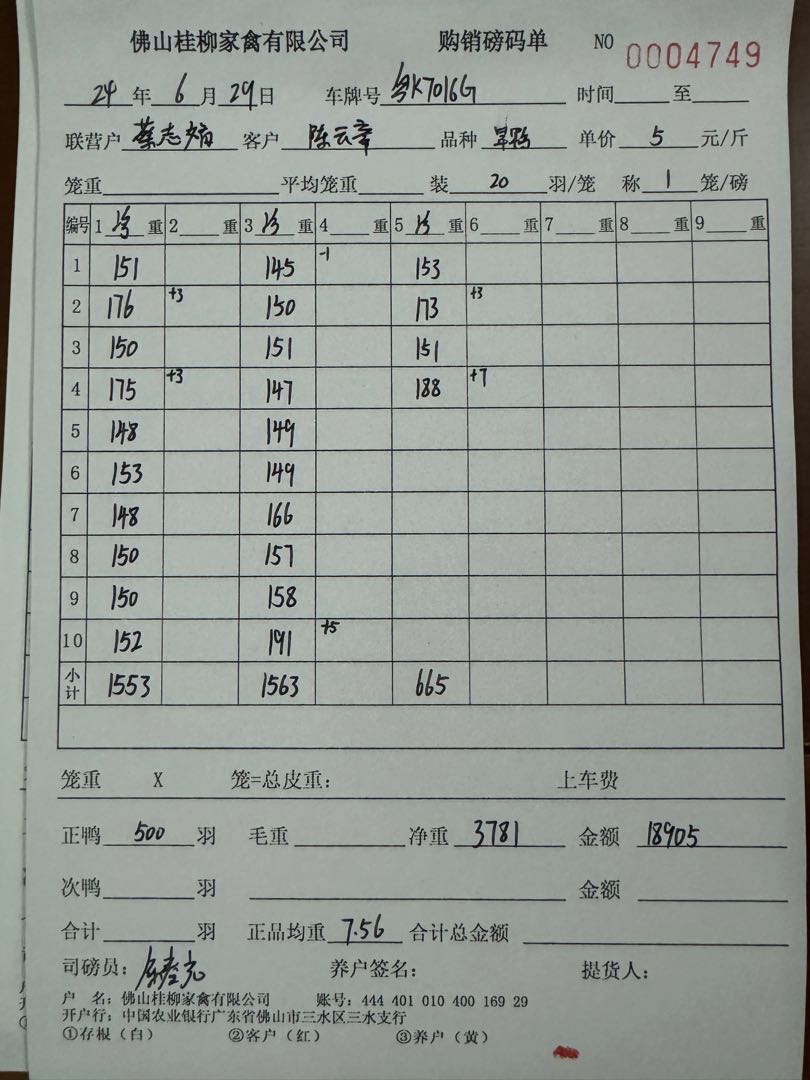 佛山桂柳家禽有限公司 购销磅码单 NO 0004749
24 年 6 月 29 日 车牌号 粤K7016G 时间 至
联营户 蔡志 客户 陈云章 品种 单价 5 元/斤
笼重 平均笼重 装 20 羽/笼 称 1 笼/磅
编号 1 重 2 重 3 重 4 重 5 重 6 重 7 重 8 重 9 重
1 151 145 -1 153
2 176 +3 150 173 +3
3 150 151 151
4 175 +3 147 188 +7
5 148 149
6 153 149
7 148 166
8 150 157
9 150 158
10 152 191 +5
小计 1553 1563 665
笼重 X 笼=总皮重： 上车费
正鸭 500 羽 毛重 净重 3781 金额 18905
次鸭 羽 金额
合计 羽 正品均重 7.56 合计总金额
司磅员： 养户签名： 提货人：
户 名：佛山桂柳家禽有限公司 账号：444 401 010 400 169 29
开户行：中国农业银行广东省佛山市三水区三水支行
①存根（白） ②客户（红） ③养户（黄）